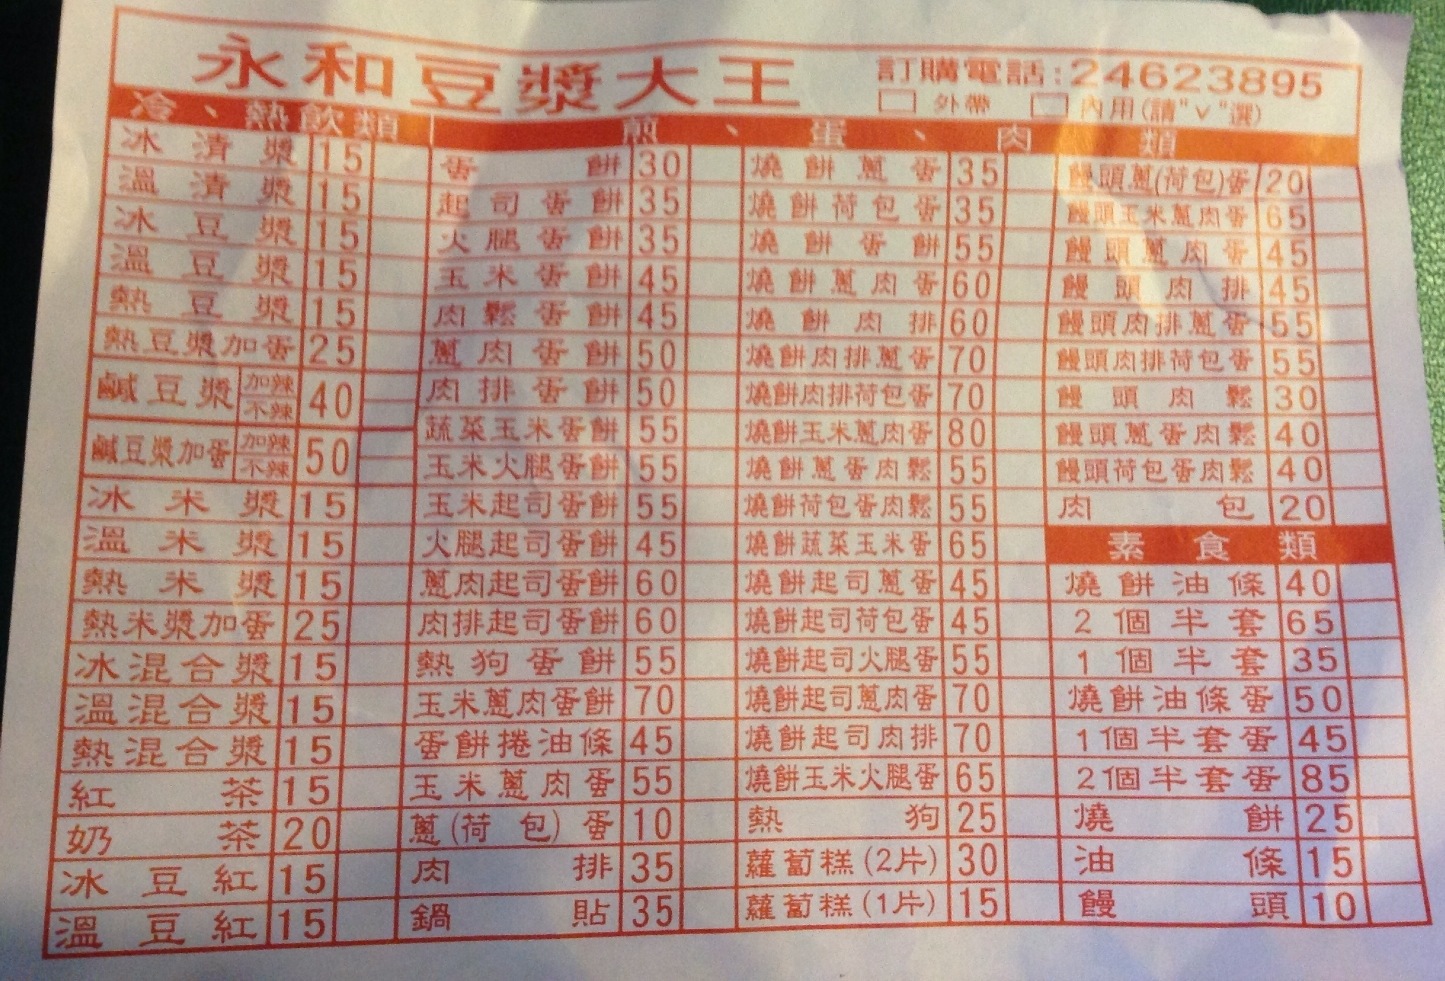 永和豆漿大王 訂購電話:24623895
外帶 內用(請"∨"選)
冷、熱飲類
冰清漿 15
溫清漿 15
冰豆漿 15
溫豆漿 15
熱豆漿 15
熱豆漿加蛋 25
鹹豆漿 加辣 不辣 40
鹹豆漿加蛋 加辣 不辣 50
冰米漿 15
溫米漿 15
熱米漿 15
熱米漿加蛋 25
冰混合漿 15
溫混合漿 15
熱混合漿 15
紅茶 15
奶茶 20
冰豆紅 15
溫豆紅 15
煎、蛋、肉類
蛋餅 30
起司蛋餅 35
火腿蛋餅 35
玉米蛋餅 45
肉鬆蛋餅 45
蔥肉蛋餅 50
肉排蛋餅 50
蔬菜玉米蛋餅 55
玉米火腿蛋餅 55
玉米起司蛋餅 55
火腿起司蛋餅 45
蔥肉起司蛋餅 60
肉排起司蛋餅 60
熱狗蛋餅 55
玉米蔥肉蛋餅 70
蛋餅捲油條 45
玉米蔥肉蛋 55
蔥(荷包)蛋 10
肉排 35
鍋貼 35
燒餅蔥蛋 35
燒餅荷包蛋 35
燒餅蛋餅 55
燒餅蔥肉蛋 60
燒餅肉排 60
燒餅肉排蔥蛋 70
燒餅肉排荷包蛋 70
燒餅玉米蔥肉蛋 80
燒餅蔥蛋肉鬆 55
燒餅荷包蛋肉鬆 55
燒餅蔬菜玉米蛋 65
燒餅起司蔥蛋 45
燒餅起司荷包蛋 45
燒餅起司火腿蛋 55
燒餅起司蔥肉蛋 70
燒餅起司肉排 70
燒餅玉米火腿蛋 65
熱狗 25
蘿蔔糕(2片) 30
蘿蔔糕(1片) 15
饅頭蔥(荷包)蛋 20
饅頭玉米蔥肉蛋 65
饅頭蔥肉蛋 45
饅頭肉排 45
饅頭肉排蔥蛋 55
饅頭肉排荷包蛋 55
饅頭肉鬆 30
饅頭蔥蛋肉鬆 40
饅頭荷包蛋肉鬆 40
肉包 20
素食類
燒餅油條 40
2個半套 65
1個半套 35
燒餅油條蛋 50
1個半套蛋 45
2個半套蛋 85
燒餅 25
油條 15
饅頭 10